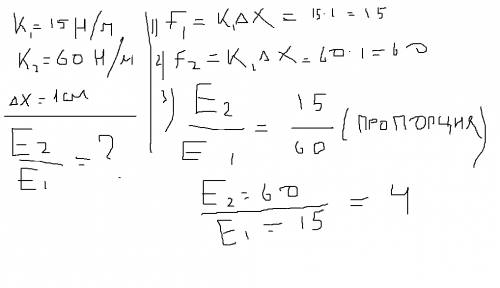 K₁=15 Н/м
K₂=60 Н/м
Δx=1см
E₂/E₁ = ?
1) F₁ = K₁ΔX = 15·1 = 15
2) F₂ = K₁ΔX = 60·1 = 60
3) E₂/E₁ = 15/60 (ПРОПОРЦИЯ)
E₂ = 60/E₁ = 15 = 4